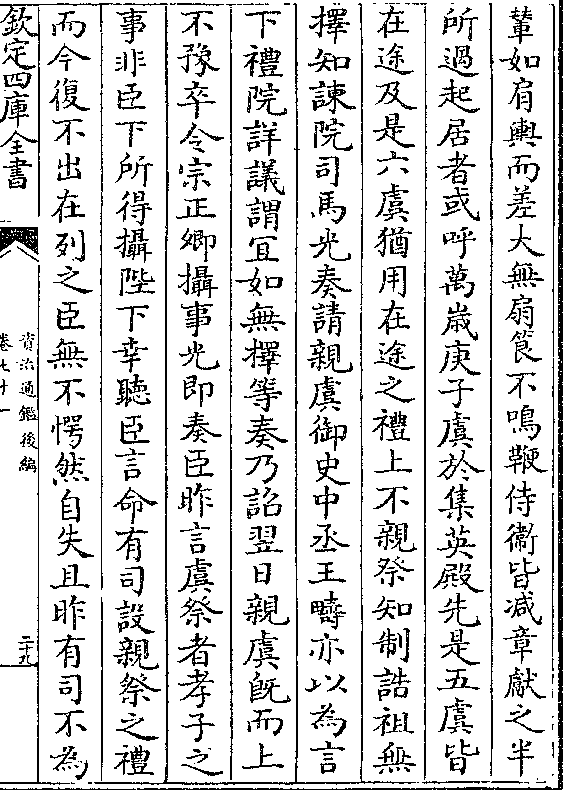 輦如肩輿而差大無扇筤不鳴鞭侍衛皆減章獻之半
所過起居者或呼萬嵗庚子虞於集英殿先是五虞皆
在途及是六虞猶用在途之禮上不親祭知制誥祖無
擇知諫院司馬光奏請親虞御史中丞王疇亦以為言
下禮院詳議謂宜如無擇等奏乃詔翌日親虞旣而上
不豫卒令宗正卿攝事光即奏臣昨言虞祭者孝子之
事非臣下所得攝陛下幸聽臣言命有司設親祭之禮
而今復不出在列之臣無不愕然自失且昨有司不為
欽定四庫全書
資治通鑑後編
卷七十一
二十九